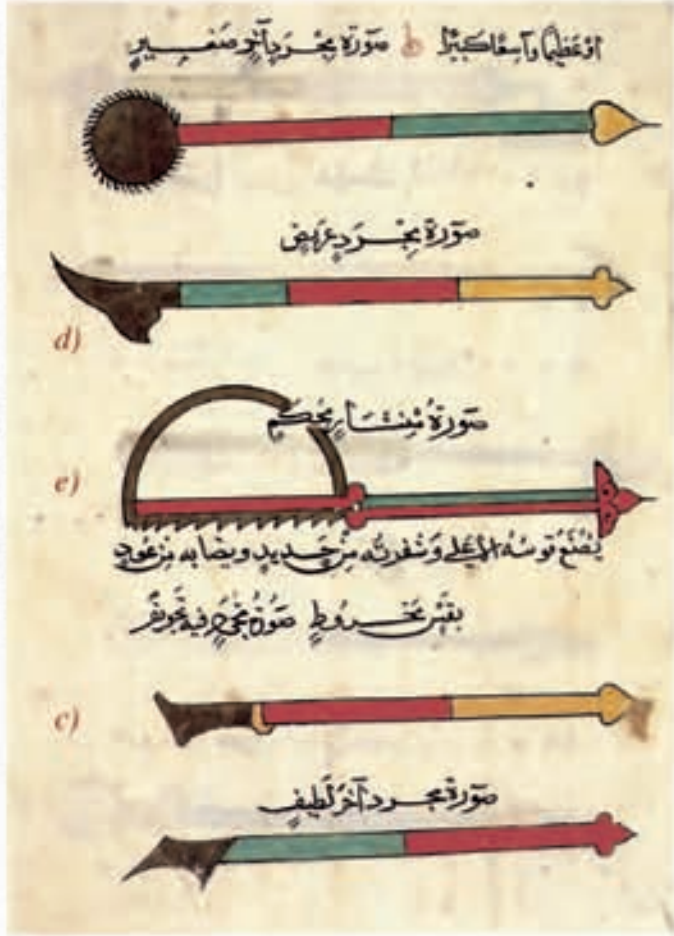 او عظيما واسعا كبيرا ط صورة مجرد آخر صغير
صورة مجرد عريض
d)
صورة منشار محكم
e)
يصنع قوسه الاعلى وشفرته من حديد ونصابه من عود
بقس مخروط صورة مجرد فيه تجويف
c)
صورة مجرد آخر لطيف